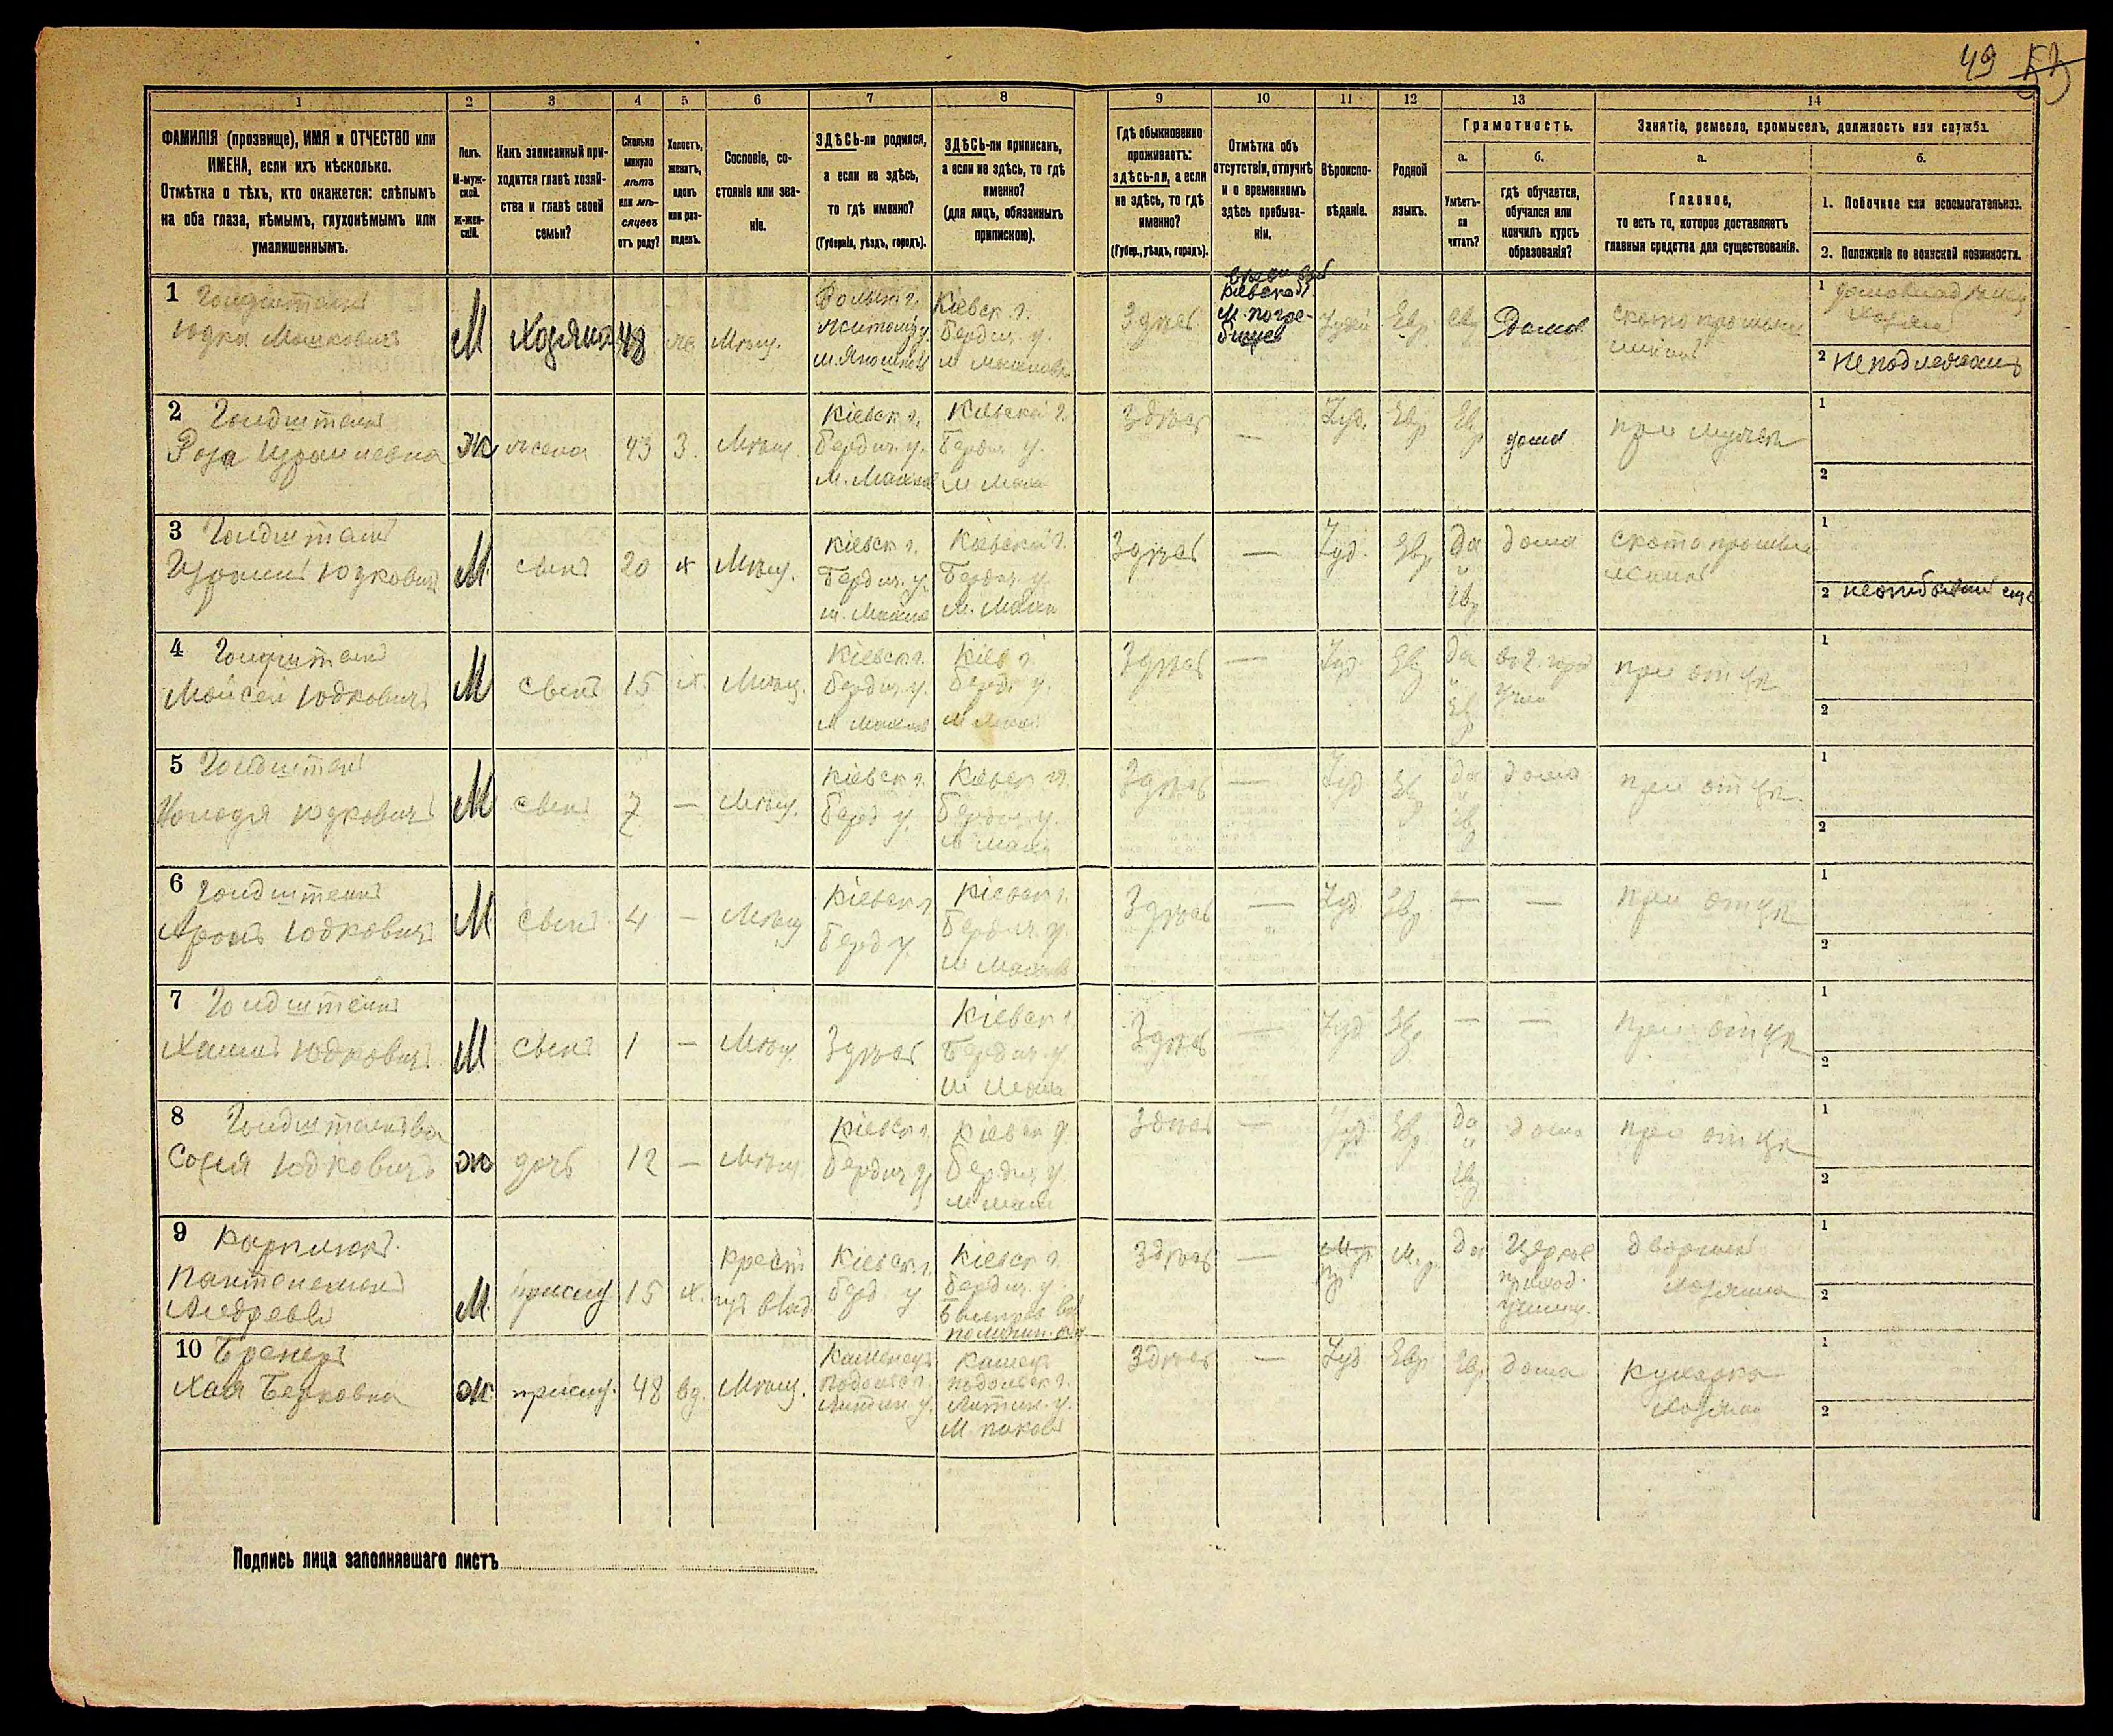 49
1 2 3 4 5 6 7 8 9 10 11 12 13 14
ФАМИЛІЯ (прозвище), ИМЯ и ОТЧЕСТВО или
ИМЕНА, если ихъ нѣсколько.
Отмѣтка о тѣхъ, кто окажется: слѣпымъ
на оба глаза, нѣмымъ, глухонѣмымъ или
умалишеннымъ.
Полъ.
М-муж-
ской.
ж-жен-
скій.
Какъ записанный при-
ходится главѣ хозяй-
ства и главѣ своей
семьи?
Сколько
минуло
лѣтъ
или мѣ-
сяцевъ
отъ роду?
Холостъ,
женатъ,
вдовъ
или раз-
веденъ.
Сословіе, со-
стояніе или зва-
ніе.
ЗДѢСЬ-ли родился,
а если не здѣсь,
то гдѣ именно?
(Губернія, уѣздъ, городъ).
ЗДѢСЬ-ли приписанъ,
а если не здѣсь, то гдѣ
именно?
(для лицъ, обязанныхъ
припискою).
Гдѣ обыкновенно
проживаетъ:
здѣсь-ли, а если
не здѣсь, то гдѣ
именно?
(Губер., уѣздъ, городъ).
Отмѣтка объ
отсутствіи, отлучкѣ
и о временномъ
здѣсь пребыва-
ніи.
Вѣроиспо-
вѣданіе.
Родной
языкъ.
Грамотность.
а.
Умѣетъ-
ли
читать?
б.
гдѣ обучается,
обучался или
кончилъ курсъ
образованія?
Занятіе, ремесло, промыселъ, должность или служба.
а.
Главное,
то есть то, которое доставляетъ
главныя средства для существованія.
б.
1. Побочное или вспомогательное.
2. Положеніе по воинской повинности.
1 Голдштейнъ
Юдка Мошковичъ
М Хозяинъ 48 же Мѣщ.
Волынск. г.
Житомір. у.
Кіевск. г.
Бердич. у.
Здѣсь
м. погре-
бище
Іудей Евр. Евр Дома
1
2 не подлежитъ
2 Голдштейнъ
Роза Израилевна
Ж жена 43 З. Мѣщ.
Кіевск г.
Бердич. у.
М. Махно
Кіевской г.
Бердич у.
М Махн
Здѣсь — Іуд. Евр Евр дома при мужѣ
1
2
3 Голдштейнъ
Израиль Юдковичъ
М сынъ 20 х Мѣщ.
Кіевск г.
Бердич. у.
м. Махно
Кіевской г.
Бердич. у.
м. Махн
Здѣсь — Іуд. Евр да и Евр дома
1
2 неотбывалъ еще
4 Голдштейнъ
Мойсей Юдковичъ
М сынъ 15 х. Мѣщ.
Кіевск г.
Бердич. у.
М Махнов
Кіев г.
Берд. у.
м Махн
Здѣсь — Іуд Евр да и Евр при отцѣ
1
2
5 Голдштейнъ
Юдковичъ
М сынъ 7 — Мѣщ.
Кіевск г.
Берд у.
Кіевск г.
Бердич. у.
м Махн
Здѣсь — Іуд Евр да и Евр дома при отцѣ.
1
2
6 Голдштейнъ
Аронъ Юдковичъ
М сынъ 4 — Мѣщ
Кіевск г
Берд у.
Кіевск г.
Бердич. у.
м Махнов
Здѣсь — Іуд Евр — — при отцѣ
1
2
7 Голдштейнъ
Хаимъ Юдковичъ
М сынъ 1 — Мѣщ. Здѣсь
Кіевск г
Бердич у
м Махн
Здѣсь — Іуд Евр — — при отцѣ
1
2
8
Софія
ж дочь 12 — Мѣщ.
Кіевск г.
Бердич у
Кіевск г.
Бердич у
м Махн
Здѣсь — Іуд Евр да и Евр дома при отцѣ
1
2
9 Карплюкъ
Пантелемонъ
Андреевъ
М. прислуг 15 х. Крест
Кіевск г.
Берд. у
Кіевск г.
Бердич. у.
Здѣсь — М. р. да
Церков
приход.
училищ.
дворникъ
хозяина
1
2
10 Бренеръ
Хая Берковна
ж. прислуг. 48 вд. Мѣщ.
Каменец
Подольск г.
Литин у.
Камец
Подольск г.
Литин. у.
М. Пиковъ
Здѣсь — Іуд Евр Евр дома
кухарка
хозяина
1
2
Подпись лица заполнявшаго листъ